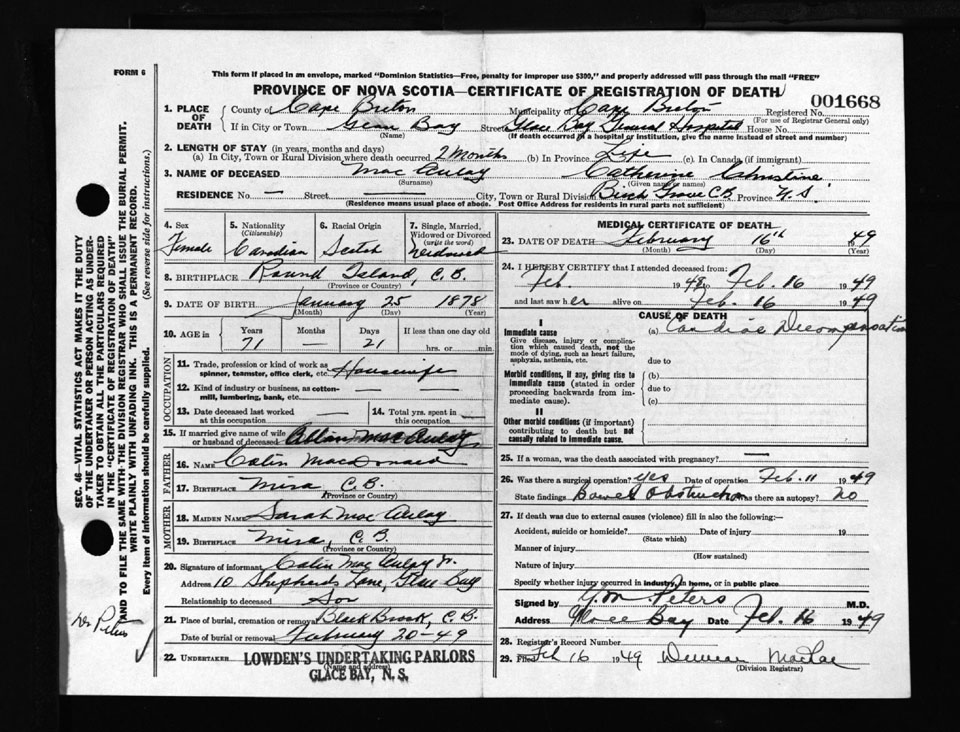 FORM 6
This form if placed in an envelope, marked "Dominion Statistics—Free, penalty for improper use $300," and properly addressed will pass through the mail "FREE"
PROVINCE OF NOVA SCOTIA—CERTIFICATE OF REGISTRATION OF DEATH
001668
1. PLACE OF DEATH County of Cape Breton Municipality of Cape Breton Registered No.
(For use of Registrar General only)
If in City or Town Glace Bay Street Glace Bay General Hospital House No.
(Name) (If death occurred in a hospital or institution, give the name instead of street and number)
2. LENGTH OF STAY (in years, months and days)
(a) In City, Town or Rural Division where death occurred 2 Months (b) In Province Life (c) In Canada (if immigrant)
3. NAME OF DECEASED Mac Aulay Catherine Christine
(Surname) (Given name or names)
RESIDENCE No. — Street — City, Town or Rural Division Birch Grove C.B. Province N.S.
(Residence means usual place of abode. Post Office Address for residents in rural parts not sufficient)
4. Sex Female
5. Nationality (Citizenship) Canadian
6. Racial Origin Scotch
7. Single, Married, Widowed or Divorced (write the word) Widowed
8. BIRTHPLACE Round Island, C.B.
(Province or Country)
9. DATE OF BIRTH January 25 1878
(Month) (Day) (Year)
10. AGE in Years Months Days If less than one day old
71 — 21 hrs. or min.
OCCUPATION
11. Trade, profession or kind of work as spinner, teamster, office clerk, etc. Housewife
12. Kind of industry or business, as cotton-mill, lumbering, bank, etc.
13. Date deceased last worked at this occupation —
14. Total yrs. spent in this occupation —
15. If married give name of wife or husband of deceased Allan MacAulay
FATHER
16. NAME Colin MacDonald
17. BIRTHPLACE Mira, C.B.
(Province or Country)
MOTHER
18. MAIDEN NAME Sarah Mac Aulay
19. BIRTHPLACE Mira, C.B.
(Province or Country)
20. Signature of informant Colin Mac Aulay
Address 10 Shepherds Lane, Glace Bay
Relationship to deceased Son
21. Place of burial, cremation or removal Black Brook, C.B.
Date of burial or removal February 20-49
22. UNDERTAKER LOWDEN'S UNDERTAKING PARLORS
(Name and address)
GLACE BAY, N. S.
MEDICAL CERTIFICATE OF DEATH
23. DATE OF DEATH February 16th 1949
(Month) (Day) (Year)
24. I HEREBY CERTIFY that I attended deceased from:
Feb. 1949 to Feb. 16 1949
and last saw her alive on Feb. 16 1949
CAUSE OF DEATH
I
Immediate cause (a) Cardiac Decompensation
Give disease, injury or complication which caused death, not the mode of dying, such as heart failure, asphyxia, asthenia, etc.
due to
Morbid conditions, if any, giving rise to immediate cause (stated in order proceeding backwards from immediate cause).
(b)
due to
(c)
II
Other morbid conditions (if important) contributing to death but not causally related to immediate cause.
25. If a woman, was the death associated with pregnancy? —
26. Was there a surgical operation? yes Date of operation Feb. 11 1949
State findings Bowel Obstruction Was there an autopsy? No
27. If death was due to external causes (violence) fill in also the following:—
Accident, suicide or homicide? Date of injury 19
(State which)
Manner of injury
(How sustained)
Nature of injury
Specify whether injury occurred in industry, in home, or in public place
Signed by Peters M.D.
Address Glace Bay Date Feb. 16 1949
28. Registrar's Record Number
29. Filed Feb 16 1949 Duncan MacRae
(Division Registrar)
SEC. 46—VITAL STATISTICS ACT MAKES IT THE DUTY OF THE UNDERTAKER OR PERSON ACTING AS UNDERTAKER TO OBTAIN ALL THE PARTICULARS REQUIRED IN THE "CERTIFICATE OF REGISTRATION OF DEATH" AND TO FILE THE SAME WITH THE DIVISION REGISTRAR WHO SHALL ISSUE THE BURIAL PERMIT.
WRITE PLAINLY WITH UNFADING INK. THIS IS A PERMANENT RECORD.
Every item of information should be carefully supplied. (See reverse side for instructions.)
Dr Peters